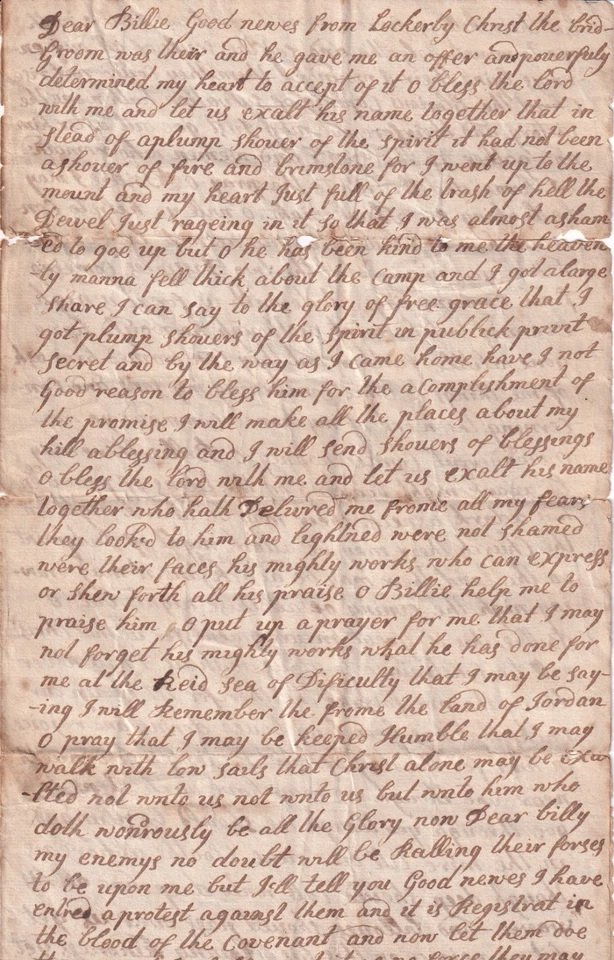 Dear Billie Good newes from Lockerby Christ the brid-
Groom was their and he gave me an offer and powerfuly
determined my heart to accept of it O bless the lord
with me and let us exalt his name together that in
stead of a plump shouer of the spirit it had not been
a shouer of fire and brimstone for I went up to the
mount and my heart Just full of the trash of hell the
Dewel Just rageing in it so that I was almost asham
ed to goe up but O he has been kind to me the heaven
ly manna fell thick about the Camp and I got a large
share I can say to the glory of free grace that I
got plump shouers of the spirit in publick privit
secret and by the way as I came home have I not
Good reason to bless him for the acomplishment of
the promise I will make all the places about my
hill a blessing and I will send shouers of blessings
O bless the lord with me and let us exalt his name
together who hath Delivred me frome all my fears
they look'd to him and lightned were not shamed
were their faces his mighty works who can express
or shew forth all his praise O Billie help me to
praise him O put up a prayer for me that I may
not forget his mighty works what he has done for
me at the Reid sea of Dificulty that I may be say-
-ing I will Remember the frome the land of Jordan
O pray that I may be keeped Humble that I may
walk with low sails that Christ alone may be exa
-lted not unto us not unto us but unto him who
doth wondrously be all the Glory now Dear billy
my enemys no doubt will be Ralling their forses
to be upon me but I'll tell you Good newes I have
entred a protest against them and it is Registrat in
the blood of the Covenant and now let them doe
the forse they may